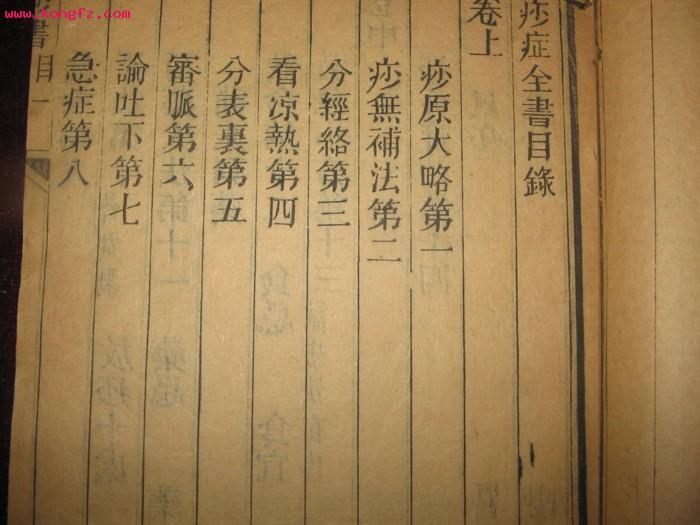 痧症全書目錄
卷上
痧原大略第一
痧無補法第二
分經絡第三
看凉熱第四
分表裏第五
審脈第六
論吐下第七
急症第八
書目一
www.kongfz.com